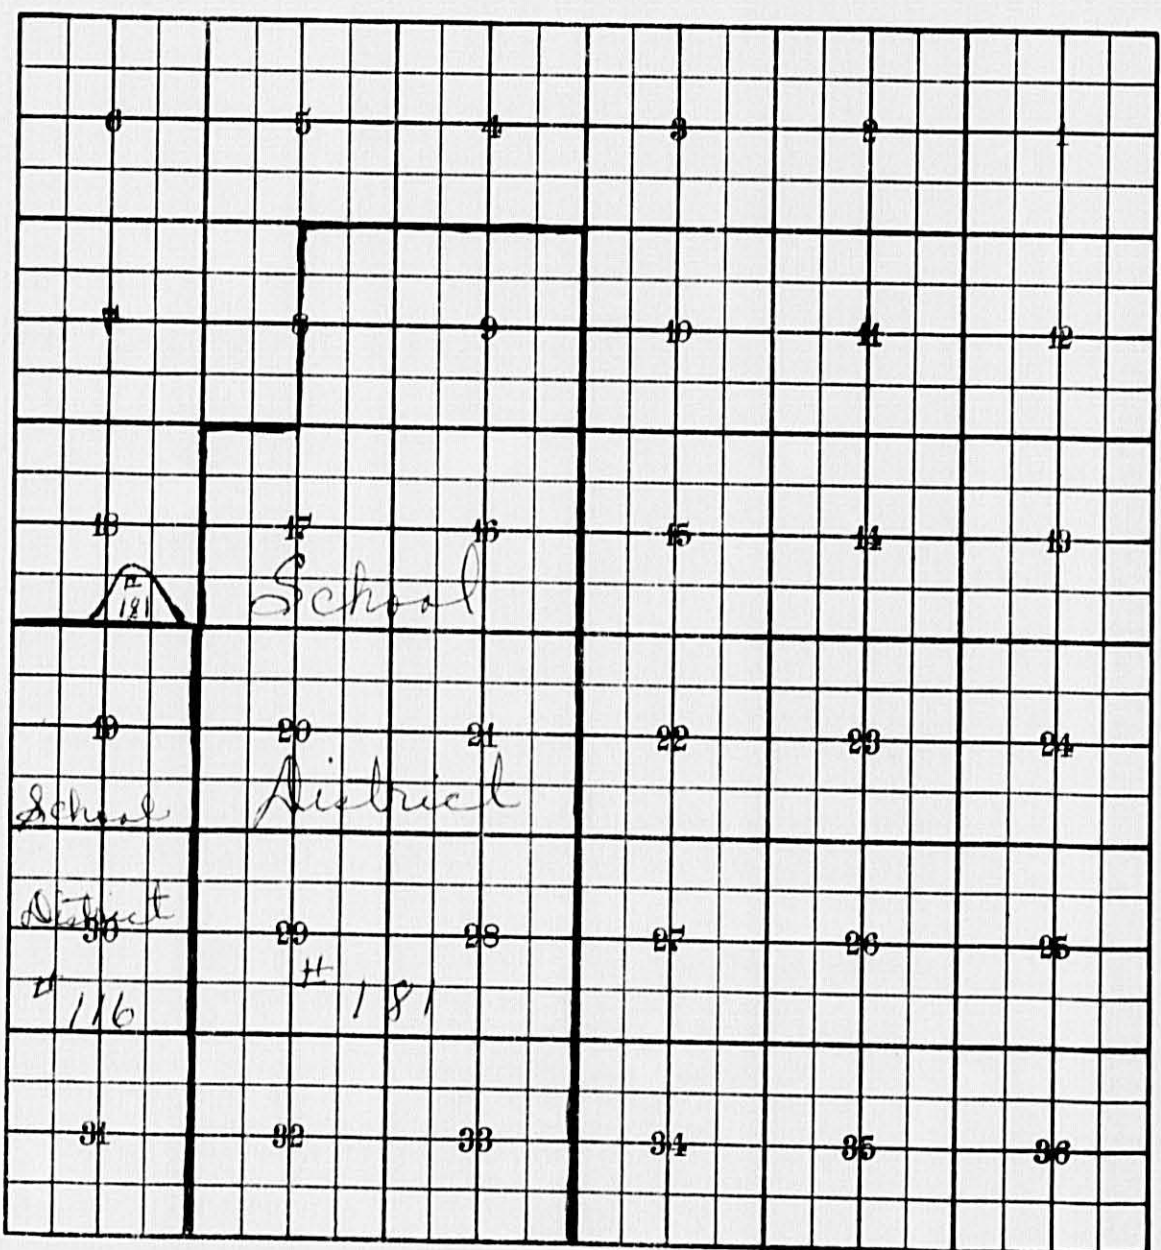 6 5 4 3 2 1
7 8 9 10 11 12
18 17 16 15 14 13
181 School
19 20 21 22 23 24
School District
District
30 29 28 27 26 25
# 116 # 181
31 32 33 34 35 36